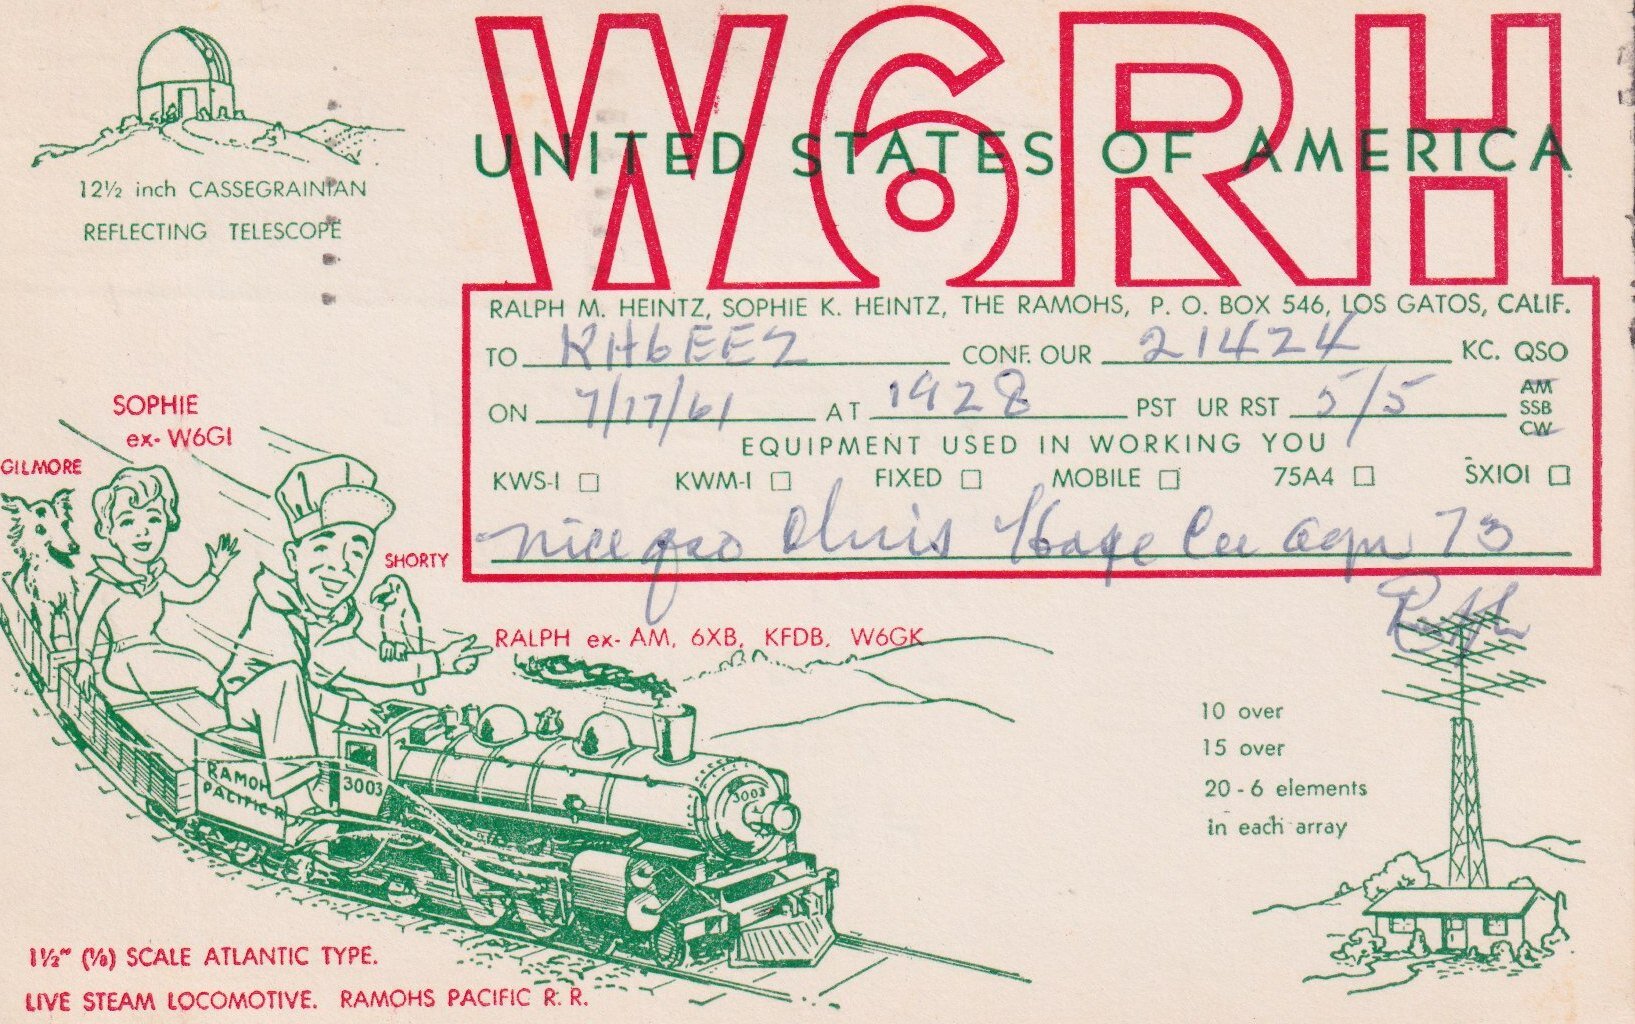 W6RH
UNITED STATES OF AMERICA
12½ inch CASSEGRAINIAN
REFLECTING TELESCOPE
RALPH M. HEINTZ, SOPHIE K. HEINTZ, THE RAMOHS, P. O. BOX 546, LOS GATOS, CALIF.
TO KH6EEZ CONF. OUR 21424 KC. QSO
ON 7/17/61 AT 1928 PST UR RST 5/5 AM SSB CW
EQUIPMENT USED IN WORKING YOU
KWS-1 □ KWM-1 □ FIXED □ MOBILE □ 75A4 □ SX101 □
nice qso Chris Hope Cu agn 73
Ralph
SOPHIE
ex- W6GI
GILMORE
SHORTY
RALPH ex- AM, 6XB, KFDB, W6GK
10 over
15 over
20 - 6 elements
in each array
RAMOH
PACIFIC R
3003
3003
1½" (⅛) SCALE ATLANTIC TYPE.
LIVE STEAM LOCOMOTIVE. RAMOHS PACIFIC R. R.